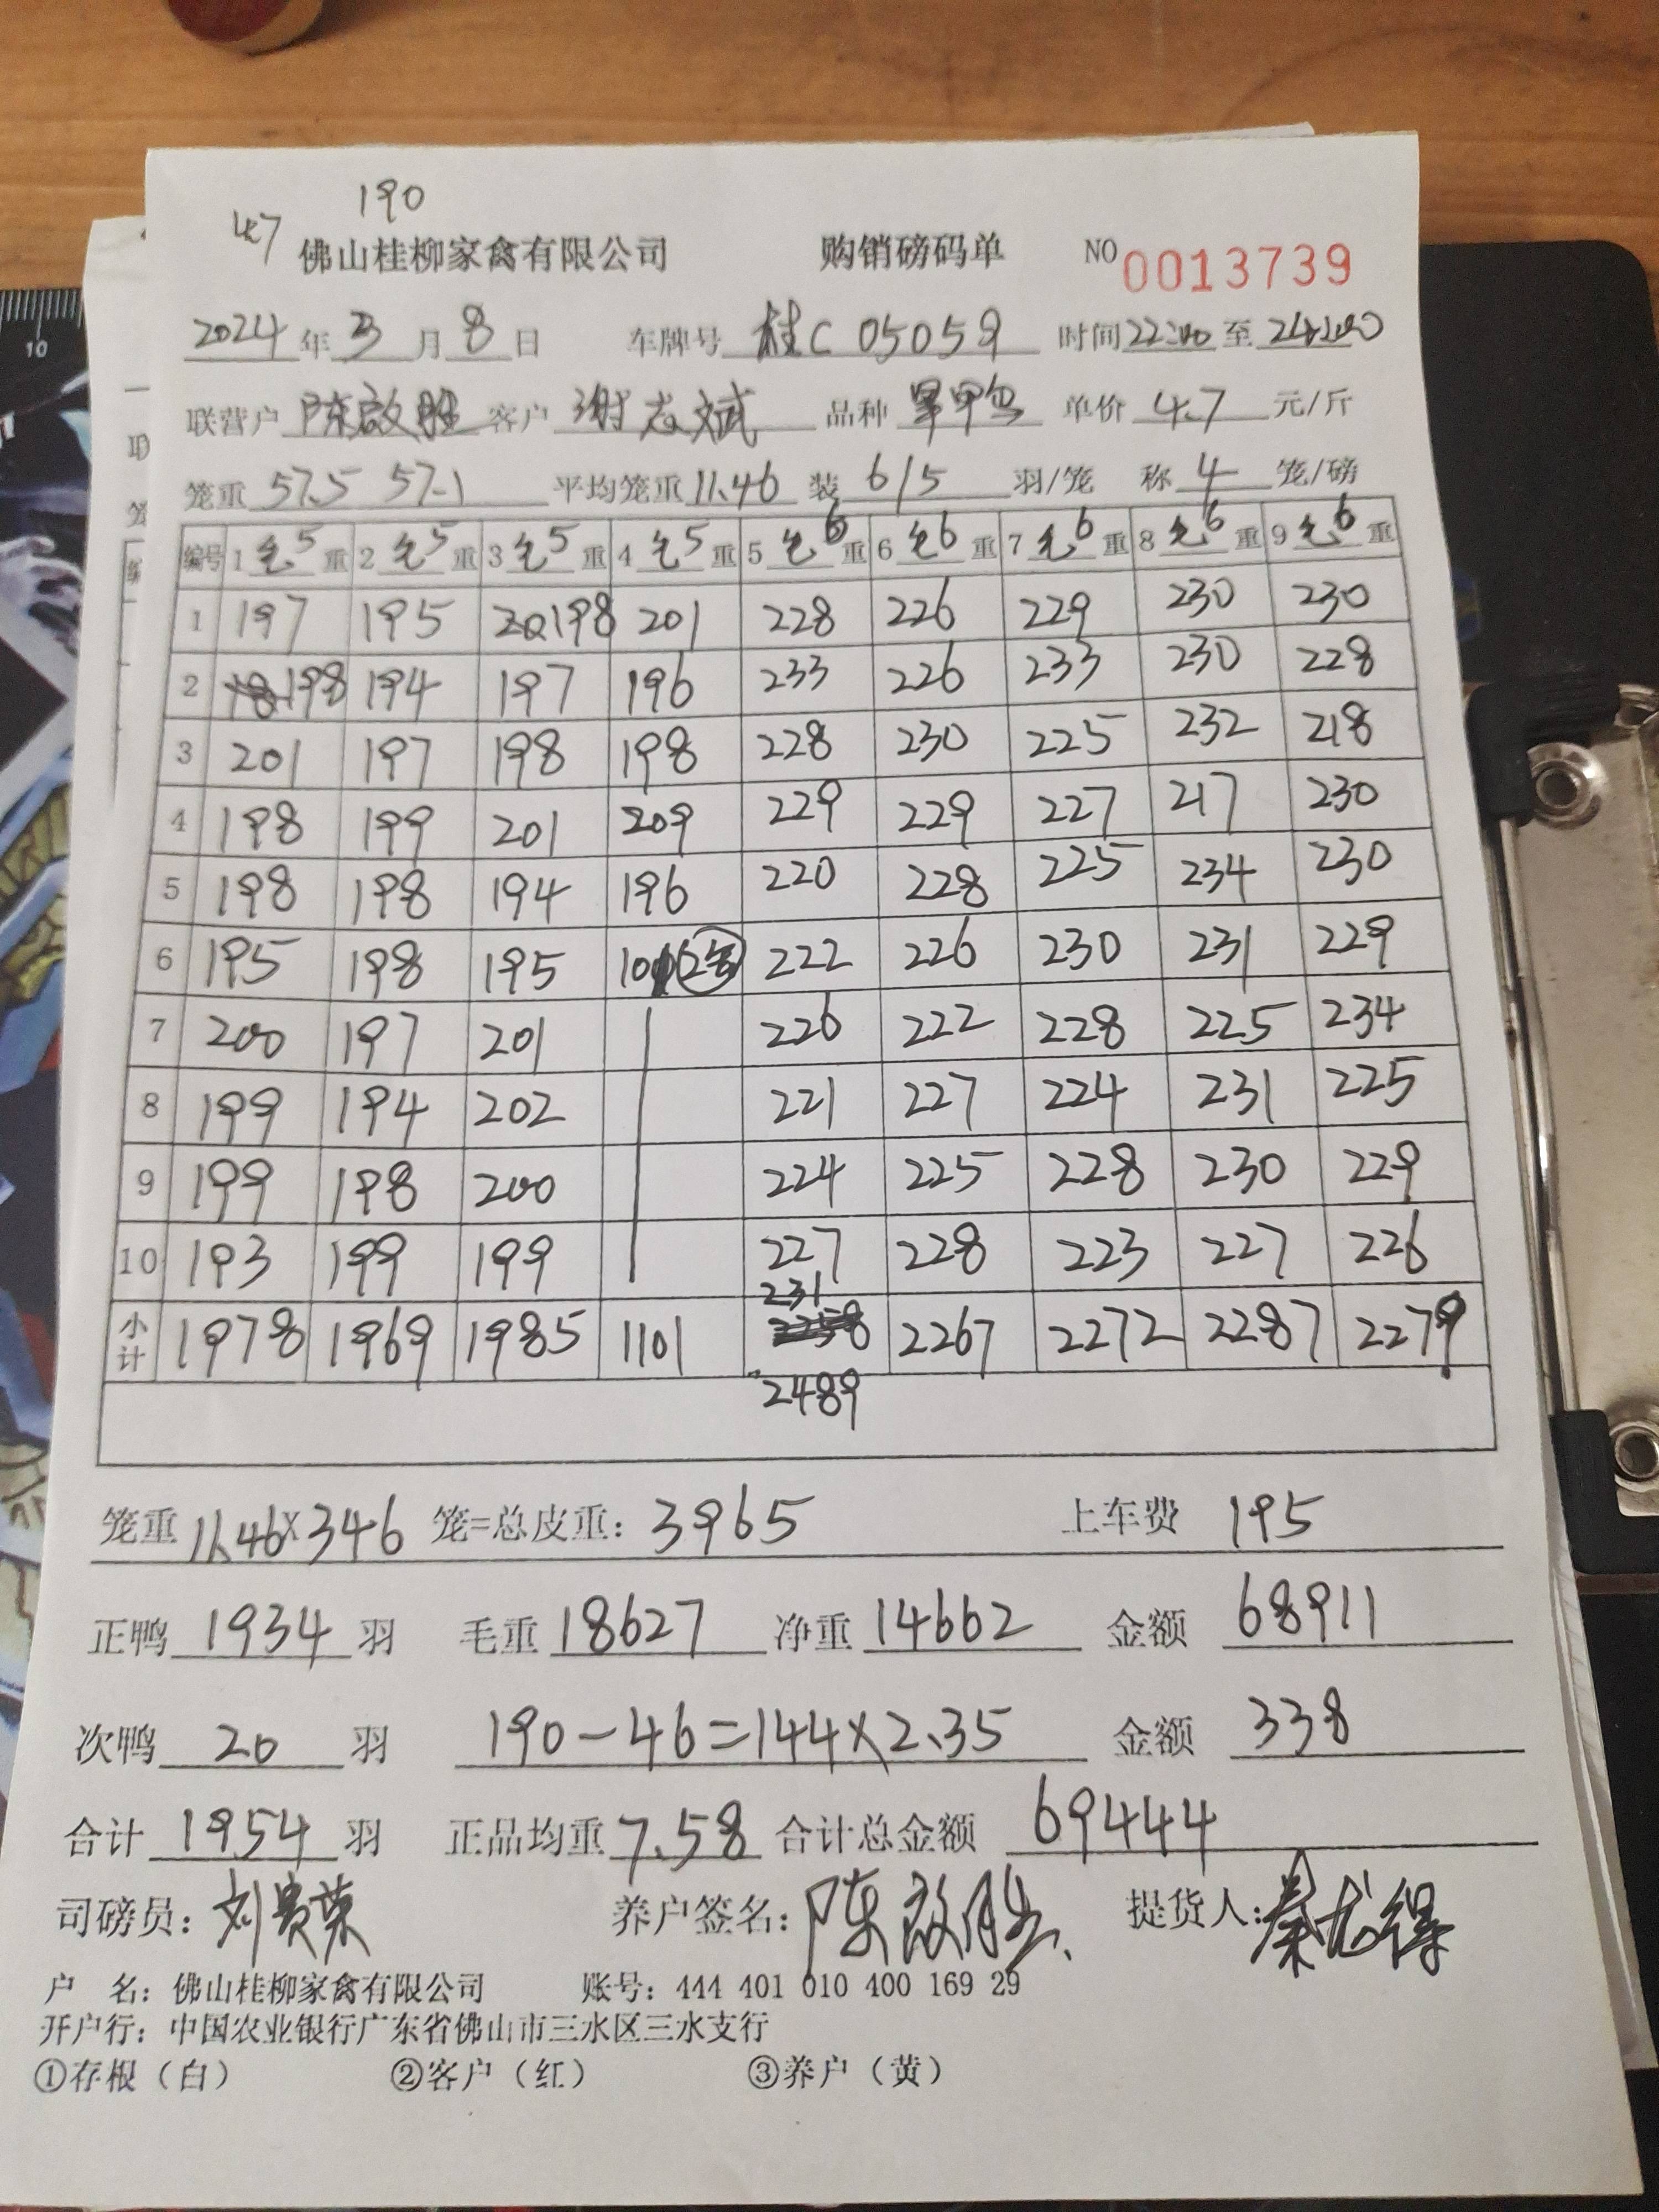 190
4.7 佛山桂柳家禽有限公司 购销磅码单 NO 0013739
2024 年 3 月 8 日 车牌号 桂C 05059 时间 22:00 至 24:00
联营户 陈啟胜 客户 谢志斌 品种 单价 4.7 元/斤
笼重 57.5 57.1 平均笼重 11.46 装 6/5 羽/笼 称 4 笼/磅
编号 1 毛5 重 2 毛5 重 3 毛5 重 4 毛5 重 5 毛6 重 6 毛6 重 7 毛6 重 8 毛6 重 9 毛6 重
1 197 195 198 201 228 226 229 230 230
2 198 194 197 196 233 226 233 230 228
3 201 197 198 198 228 230 225 232 218
4 198 199 201 209 229 229 227 217 230
5 198 198 194 196 220 228 225 234 230
6 195 198 195 101 222 226 230 231 229
7 200 197 201 226 222 228 225 234
8 199 194 202 221 227 224 231 225
9 199 198 200 224 225 228 230 229
10 193 199 199 227 228 223 227 226
231
小计 1978 1969 1985 1101 2258 2267 2272 2287 2279
2489
笼重 11.46×346 笼=总皮重: 3965 上车费 195
正鸭 1934 羽 毛重 18627 净重 14662 金额 68911
次鸭 20 羽 190-46=144×2.35 金额 338
合计 1954 羽 正品均重 7.58 合计总金额 69444
司磅员: 刘贵荣 养户签名: 陈啟胜 提货人: 秦龙得
户 名: 佛山桂柳家禽有限公司 账号: 444 401 010 400 169 29
开户行: 中国农业银行广东省佛山市三水区三水支行
①存根（白） ②客户（红） ③养户（黄）